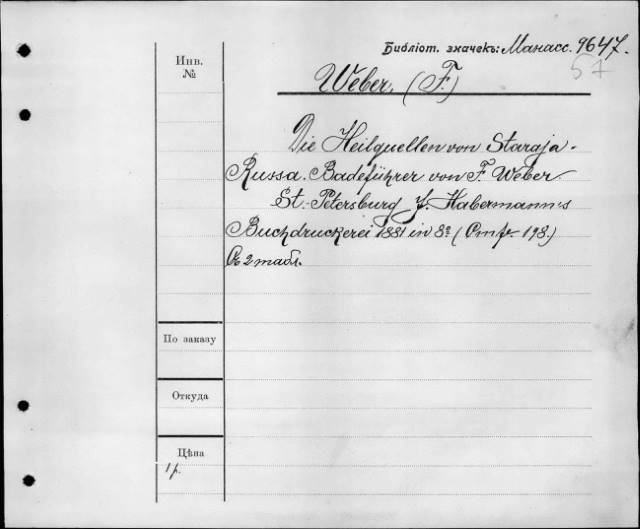 Библіот. значекъ: Манасс. 9647.
57
Инв.
№
Weber. (F.)
Die Heilquellen von Staraja-
Russa. Badeführer von F. Weber.
St. Petersburg J. Habermann's
Buchdruckerei 1881 in 8º (Стр. 198.)
Съ 2 табл.
По заказу
Откуда
Цѣна
1 р.